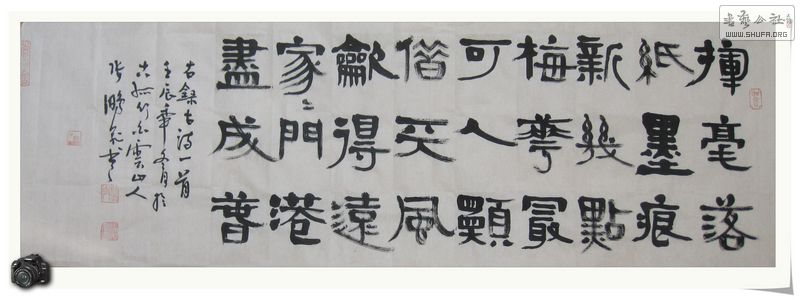 書藝公社
WWW.SHUFA.ORG
揮毫落
紙墨痕
新幾點
梅華最
可人願
借天風
龡得遠
家〻門港
盡成春
右錄古詩一首
壬辰年冬月於
雲山人
書